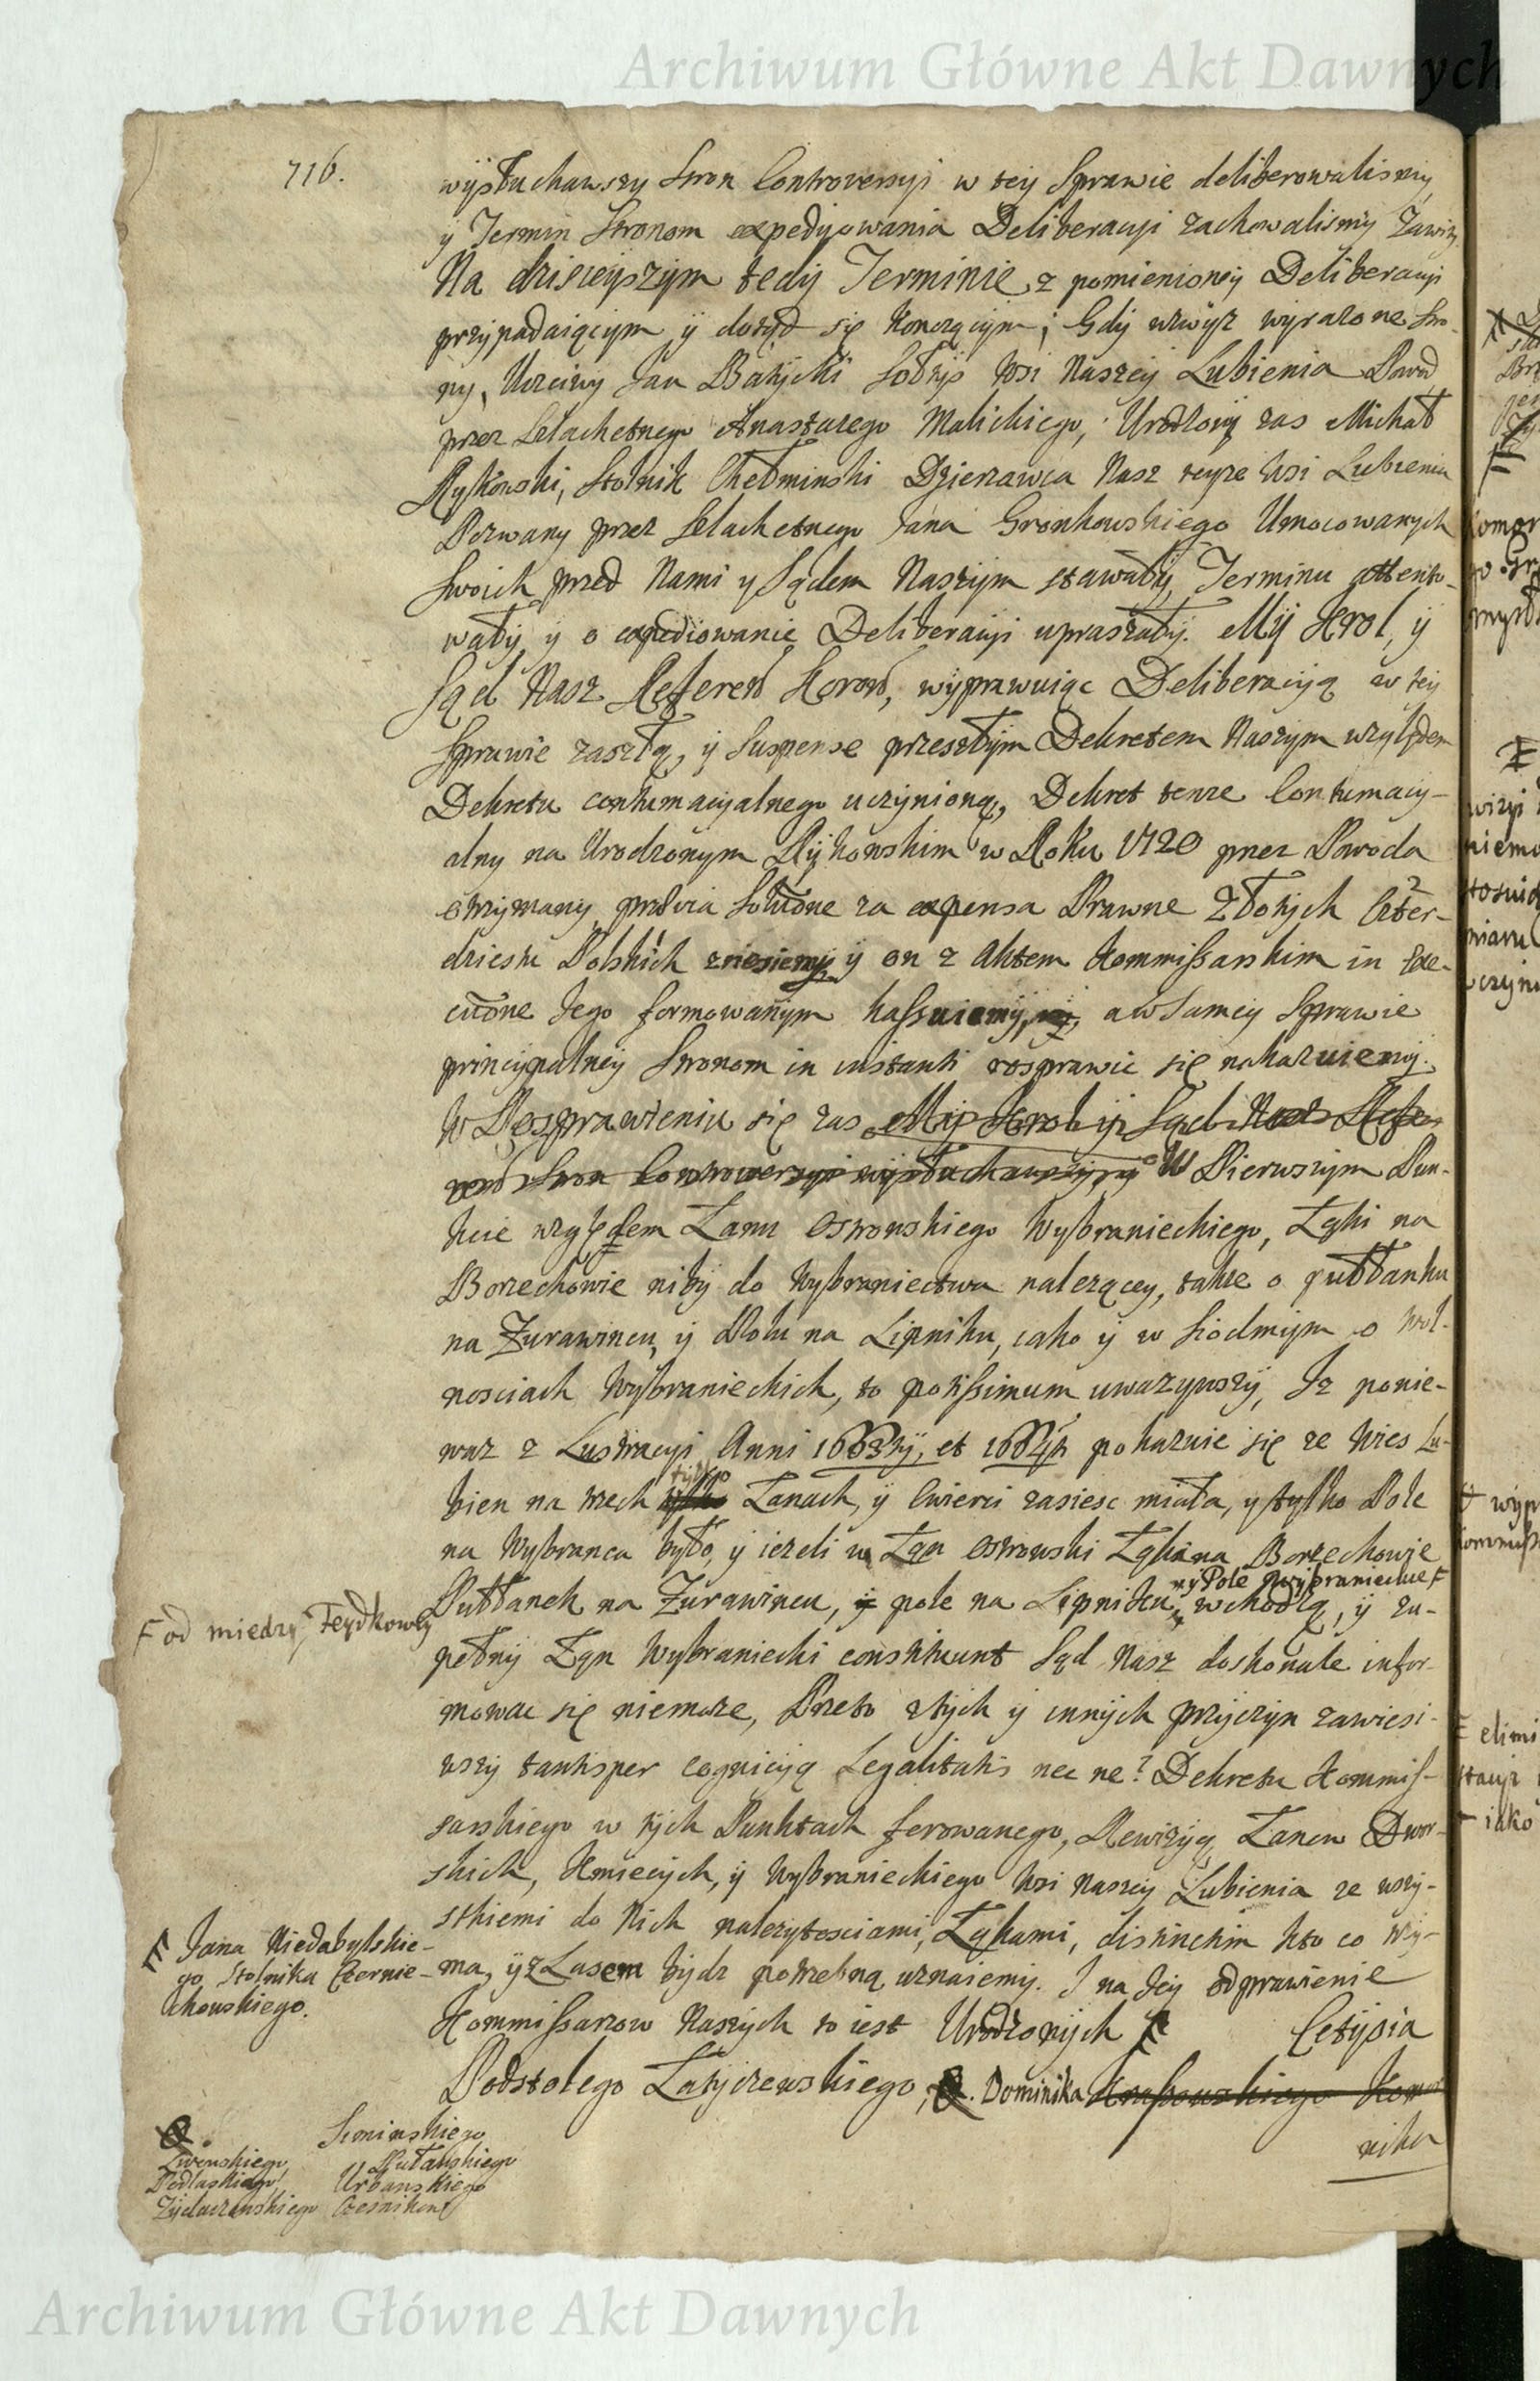 Archiwum Główne Akt Dawnych
716.
wysłuchawszy Stron Controversyi w tey Sprawie deliberowalismy,
y Termin Stronom expedyowania Deliberacyi zachowalismy
Na dzisieyszym tedy Terminie z pomienioney Deliberacyi
przypadaiącym y dotąd się kończącym; Gdy wzwyż wyrażone Stro-
ny, Uczciwy Jan Batycki Sołtys Wsi Naszey Lubienia Powod
przez Szlachetnego Anastazego Malickiego, Urodzony zas Michał
Rykowski, Stolnik Chełminski Dzierzawca Nasz teyze Wsi Lubienia
Pozwany przez Szlachetnego Jana Gronkowskiego Umocowanych
Swoich przed Nami y Sądem Naszym stawały, Terminu attento-
wały y o expediowanie Deliberacyi upraszały. My Krol, y
Sąd Nasz Referen Koron, wyprawuiąc Deliberacyią w tey
Sprawie zaszłą, y Suspense przeszłym Dekretem Naszym względem
Dekretu contumacyalnego uczynioną, Dekret tenze Contumacy-
alny na Urodzonym Rykowskim w Roku 1720 przez Powoda
otrzymany, praevia Solutione za expensa Prawne Złotych Czter-
dziestu Polskich zniesiemy y on z Aktem Kommissarskim in exe-
cutione Jego formowanym kassuiemy, a w Samey Sprawie
principalney Stronom in instanti rosprawic się nakazuiemy.
W Rosprawieniu się zas My Krol y Sąd Nasz Refe-
ren Stron Controwersyi wysłuchawszy W Pierwszym Pun-
kcie względem Łanu Ostrowskiego Wybranieckiego, Łąki na
Borzechowie niby do Wybraniectwa nalezącey, takze o pułłanku
na Zurawincu, y Polu na Lipniku, iako y w siodmym o Wol-
nosciach Wybranieckich, to potissimum uwazywszy, Iz ponie-
waz z Lustracyi Anni 1663ty, et 1664ty pokazuie się ze Wies Lu-
bien na trzech tylko Łanach, y Cwierci zasiesc miała, y tylko Pole
na Wybranca było, y iezeli w Łan Ostrowski Łąka na Borzechowie
Pułłanek na Zurawincu, y pole na Lipniku, wchodzą, y zu-
ny Pole wybranieckie F
F od miedzy Feydkowey
pełny Łan Wybraniecki constituunt Sąd Nasz doskonale infor-
mowac się niemoze, Przeto z tych y innych przyczyn zawiesi-
wszy tantisper cognicyą Legalitatis nec ne? Dekretu Kommis-
sarskiego w tych Punktach ferowanego, Rewizyą Łanow Dwor-
skich, Kmiecych, y Wybranieckiego Wsi Naszey Lubienia ze wszy-
stkiemi do Nich nalezytosciami, Łąkami, distinctim kto co trzy-
ma, y z Lasem bydz potrzebną uznaiemy. I na Jey odprawienie
Kommissarzow Naszych to iest Urodzonych F Cetysia
F Jana Niedabylskie-
go, Stolnika Czernie-
chowskiego.
Podstolego Latyczewskiego, Dominika Krassowskiego Komor
nika
Liwenskiego,
Podlaskiego,
Zydaczewskiego
Siminskiego
Pułauskiego
Urbanskiego
Czesnikow
Archiwum Główne Akt Dawnych